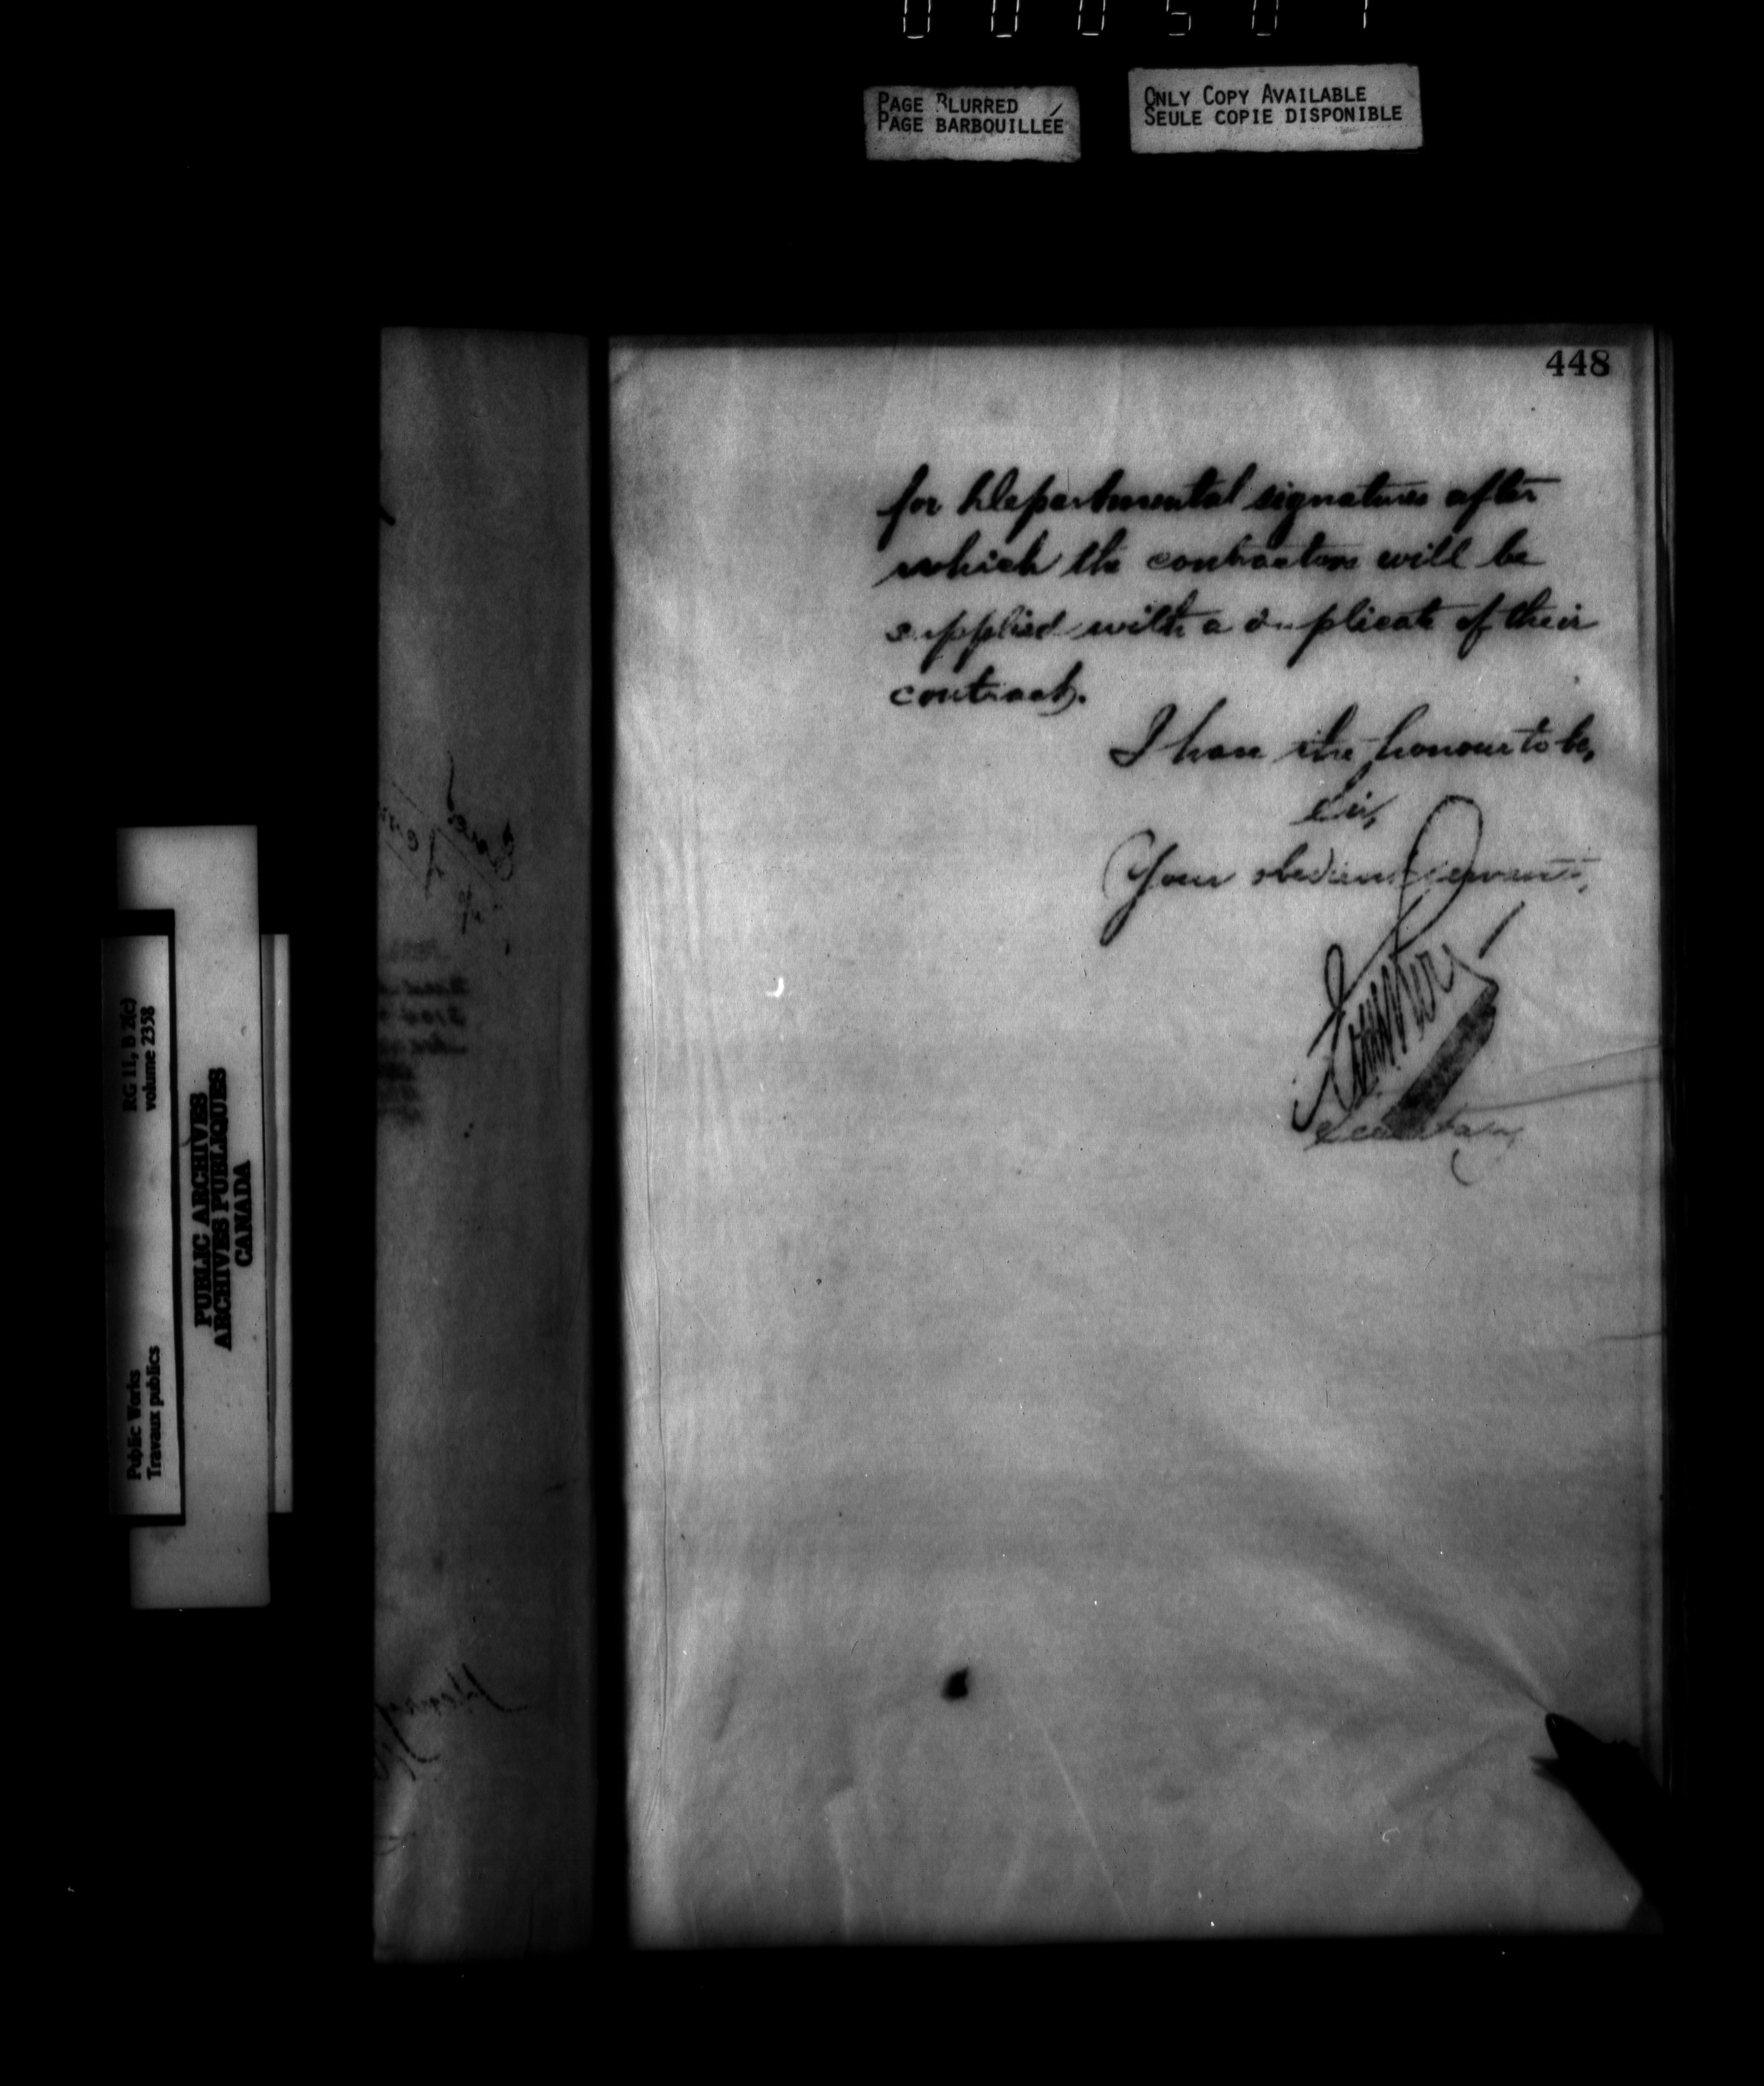 000501
PAGE BLURRED
PAGE BARBOUILLÉE
ONLY COPY AVAILABLE
SEULE COPIE DISPONIBLE
448
for Departmental signatures after
which the contractors will be
supplied with a duplicate of their
contract.
I have the honour to be,
Sir,
Your obedient servant,
Secretary
RG 11, B 2(c)
volume 2358
Public Works
Travaux publics
PUBLIC ARCHIVES
ARCHIVES PUBLIQUES
CANADA